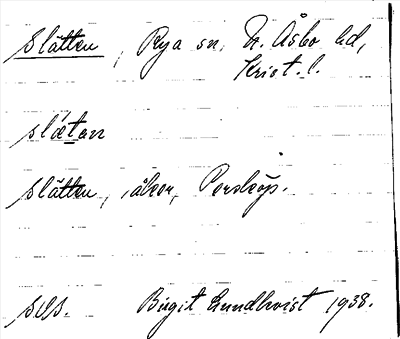 Slätten, Rya sn, N. Åsbo hd,
Krist. l.
slǽtan
Slätten, åker, Perstorp.
SOS. Birgit Lundkvist 1938.